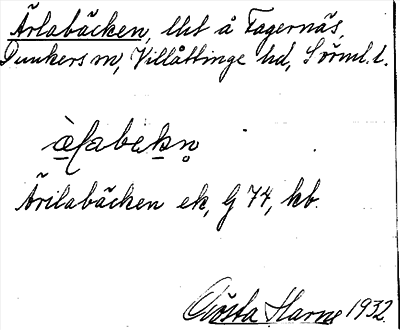 Ärlabäcken, lht å Fagernäs,
Dunkers sn, Villåttinge hd, Sörml. l.
àlabekn̥
Ärilabäcken ek, G 74, kb.
Gösta Harne 1932.